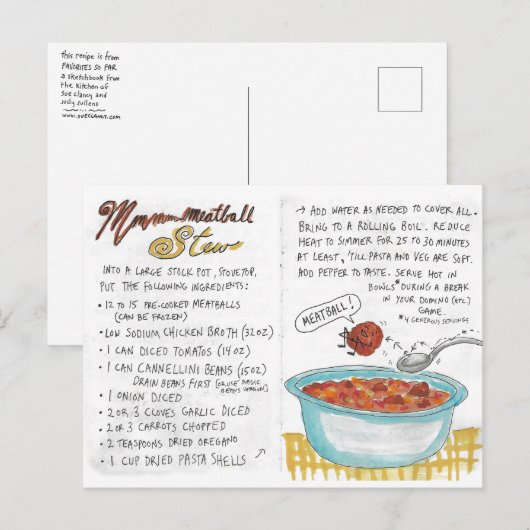 this recipe is from
FAVORITES SO FAR
a sketchbook from
the kitchen of
Sue Clancy and
Judy Sullens
www.SUECLANCY.COM
Mmmmmeatball
Stew
INTO A LARGE STOCK POT, STOVETOP,
PUT THE FOLLOWING INGREDIENTS:
• 12 TO 15 PRE-COOKED MEATBALLS
(CAN BE FROZEN)
• LOW SODIUM CHICKEN BROTH (32 OZ)
• 1 CAN DICED TOMATOS (14 OZ)
• 1 CAN CANNELLINI BEANS (15 OZ)
DRAIN BEANS FIRST [OR USE MAGIC
BEANS VERSION]
• 1 ONION DICED
• 2 OR 3 CLOVES GARLIC DICED
• 2 OR 3 CARROTS CHOPPED
• 2 TEASPOONS DRIED OREGANO
• 1 CUP DRIED PASTA SHELLS →
→ ADD WATER AS NEEDED TO COVER ALL.
BRING TO A ROLLING BOIL. REDUCE
HEAT TO SIMMER FOR 25 TO 30 MINUTES
AT LEAST, 'TILL PASTA AND VEG ARE SOFT.
ADD PEPPER TO TASTE. SERVE HOT IN
BOWLS* DURING A BREAK
IN YOUR DOMINO (ETC.)
GAME.
*4 GENEROUS SERVINGS
MEATBALL!